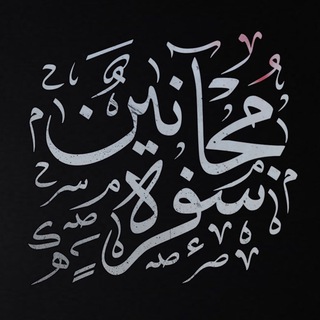 مجانين
سفرة